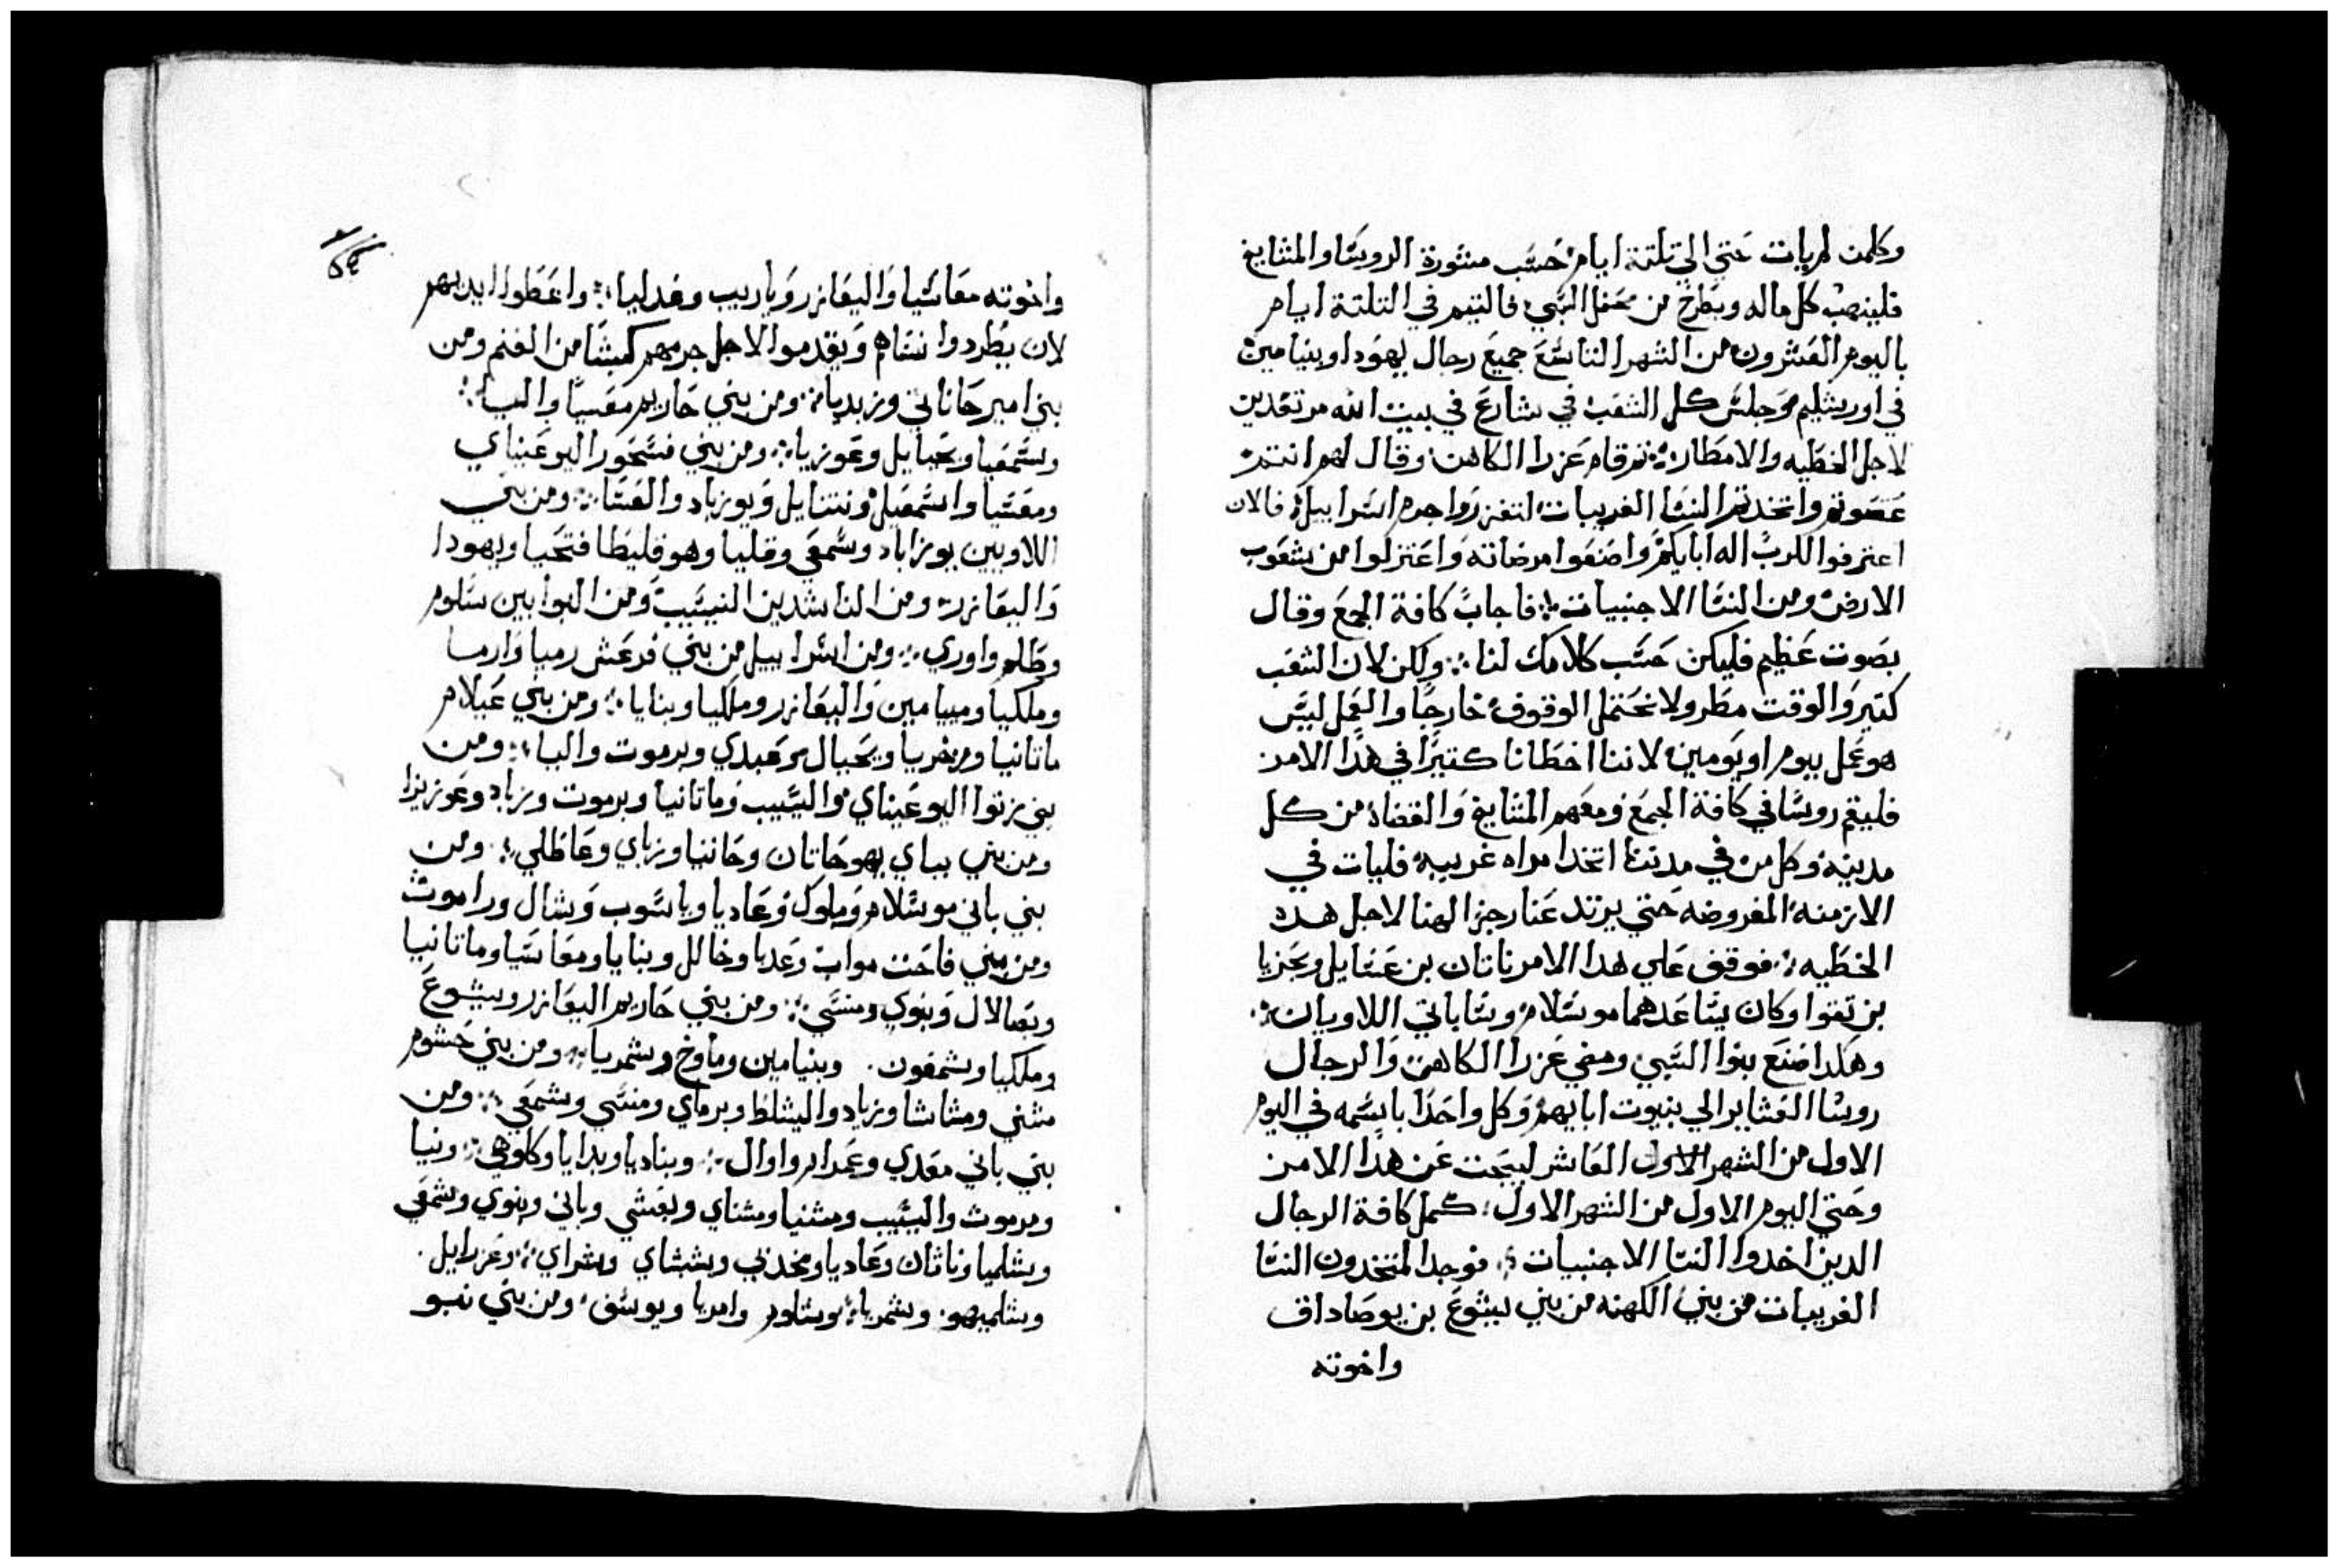 وكلمن لم يات حتي الي تلتة ايام حسب مشورة الروسا والمشايخ
فلينهب كل ماله ويطرح من محفل السبي فالتيم في التلتة ايام
باليوم العشرون من الشهر التاسع جميع رجال يهودا وبنيامين
في اورشليم وجلس كل الشعب في شارع في بيت الله مرتعدين
لاجل الخطيه والامطار ثم قام عزرا الكاهن وقال لهم انتم
عصوتم واتخدتم النسا الغريبات لتغزروا جرم اسراييل فالان
اعترفوا للرب اله ابايكم واصنعوا مرضاته واعتزلوا من شعوب
الارض ومن النسا الاجنبيات فاجاب كافة الجمع وقال
بصوت عظيم فليكن حسب كلامك لنا ولكن لان الشعب
كتير والوقت مطر ولا نحتمل الوقوف خارجا والعمل ليس
هو عمل ييوم او يومين لاننا اخطانا كتيرا في هدا الامر
فليقم روسا في كافة الجمع ومعهم المشايخ والقضاة من كل
مدينه وكل من في مدننا اتخدا مراه غريبه فليات في
الازمنه المفروضه حتي يرتد عنا رجز الهنا لاجل هده
الخطيه فوقف علي هدا الامر ناتان بن عسايل ويحزيا
بن تقوا وكان يساعدهما موسلام وسباباتي اللاويان
وهكدا صنع بنوا السبي ومضي عزرا الكاهن والرجال
روسا العشاير الي بنيوت ابايهم وكل واحدا باسمه في اليوم
الاول من الشهر الاول العاشر ليبحت عن هدا الامر
وحتي اليوم الاول من الشهر الاول كمل كافة الرجال
الدين اخدوا النسا الاجنبيات فوجدا لمتخدون النسا
الغريبات من بني الكهنه من بني ليشوع بن يوصاداق
واخوته
٥٤
واخوته معاسيا واليعازر وياريب وغدليا واعطوا ايديهم
لان يطردوا نساهم ويقدموا لاجل جرمهم كبشا من الغنم ومن
بني امير حاناني وزبديا ومن بني حاريم معسيا واليا
وسمعيا ويحيايل وعوزيا ومن بني فسحور اليوعيناي
ومعسيا واسمعيل ونتنايل ويوزباد والعسا ومن بني
اللاويين يوزاباد وسمعي وقليا وهو قليطا فتحيا ويهودا
واليعازر ومن الناشدين النيسيب ومن البوابين سلوم
وطلم واوري ومن اسراييل من بني فرعش رميا وارميا
وملكيا وميامين واليعازر وملكيا وبنايا ومن بني عيلام
ماتانيا وزخريا ويحيال وعبدي ويرموت واليا ومن
بني زتوا اليوعيناي واليسيب وماتانيا ويرموت وزباد وعوزيزا
ومن بني يباي يهوحاتان وحانيا وزباي وعاظلي ومن
بني باني موسلام وملوك وعاديا وياسوب وشال وراموث
ومن بني فاحت مواب وعديا وخالل وبنايا ومعاسيا وماتانيا
وبصالال وبنوي ومنسي ومن بني حاريم اليعازر ويشوع
وملكيا وشمعون وبنيامين وماوخ وشمريا ومن بني حشوم
مشني ومشاشا وزباد واليشلط ويرماي ومنسي وشمعي ومن
بني باني معدي وعمرام واوال وبناديا وبدايا وكلوهي ونيا
ومرموث واليسيب ومشنيا ومشناي ويعشي وباني وبنوي وشمعي
وشلميا وناثان وعاديا ومخدبي وششاي وشراي وعزرايل
وشلميهو وشمريا وشلوم وامريا ويوسف ومن بني نبو